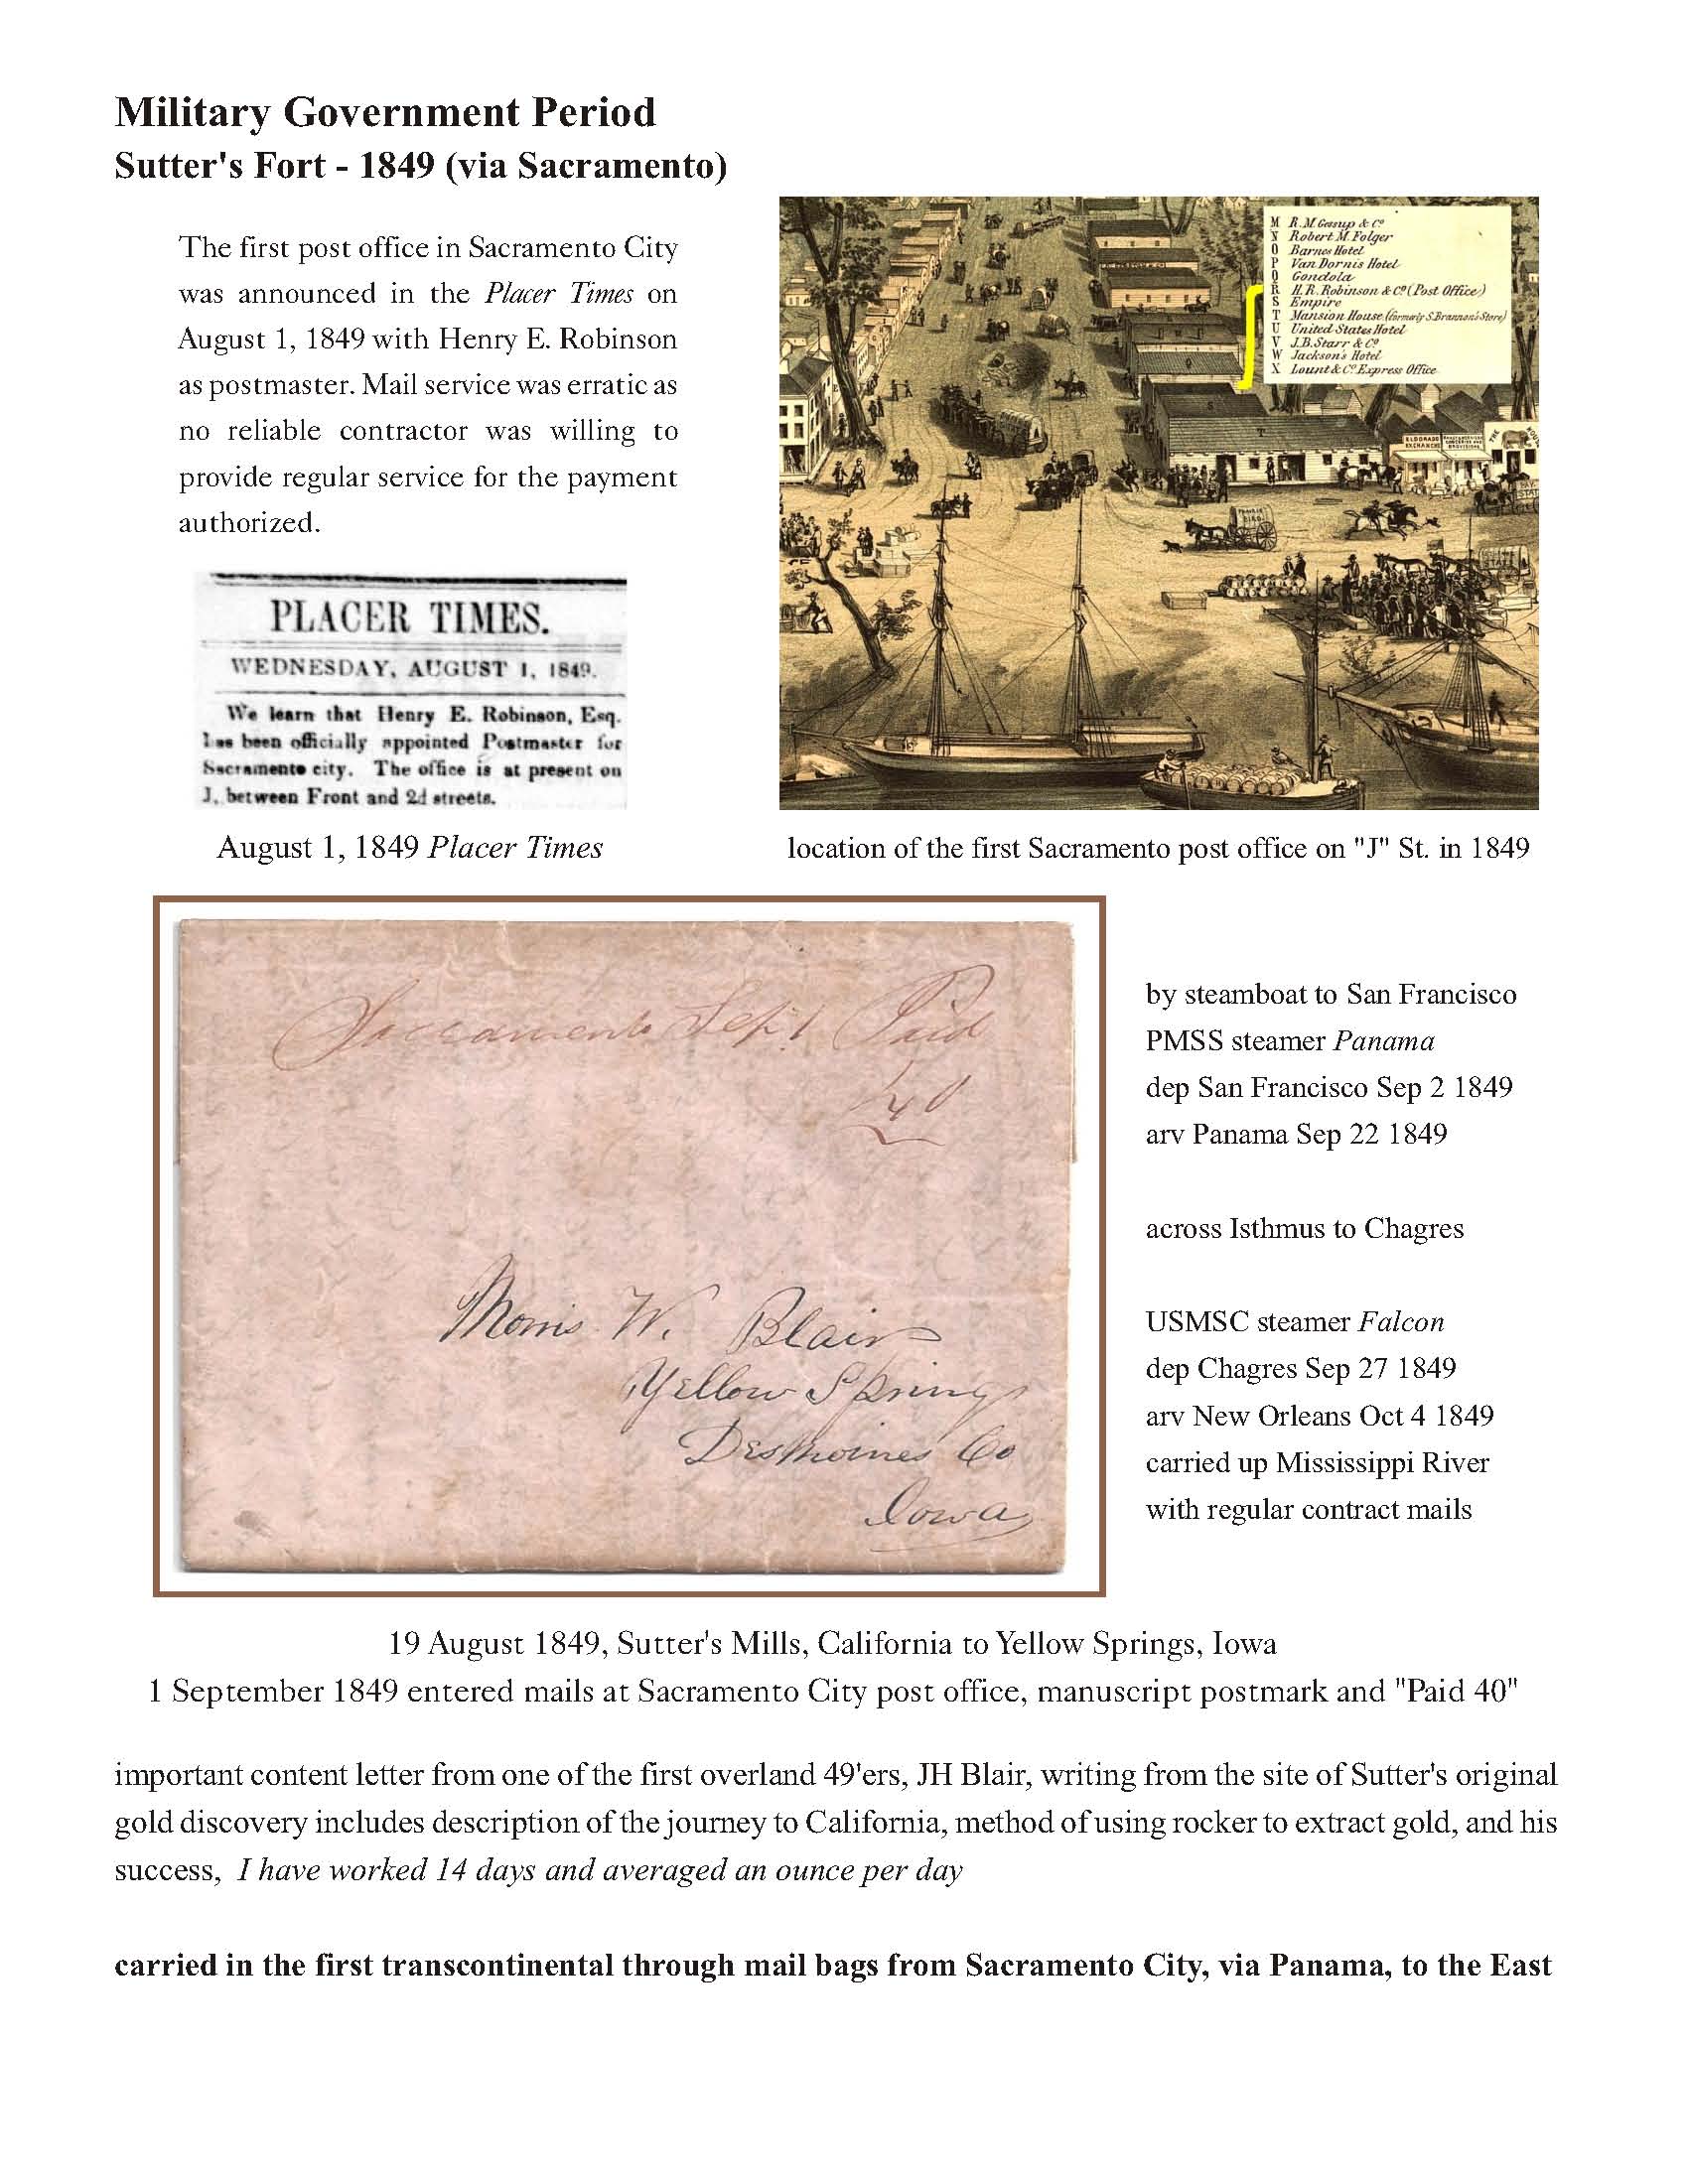 Military Government Period
Sutter's Fort - 1849 (via Sacramento)
The first post office in Sacramento City
was announced in the Placer Times on
August 1, 1849 with Henry E. Robinson
as postmaster. Mail service was erratic as
no reliable contractor was willing to
provide regular service for the payment
authorized.
PLACER TIMES.
WEDNESDAY, AUGUST 1, 1849.
We learn that Henry E. Robinson, Esq.
has been officially appointed Postmaster for
Sacramento city. The office is at present on
J, between Front and 2d streets.
August 1, 1849 Placer Times
M R.M. Gesup & Co
N Robert M. Folger
O Barnes Hotel
P Van Dornis Hotel
Q Gondola
R H.R. Robinson & Co (Post Office)
S Empire
T Mansion House (formerly S. Brannan's Store)
U United States Hotel
V J.B. Starr & Co
W Jackson's Hotel
X Lount & Co Express Office
ELDORADO
EXCHANGE
location of the first Sacramento post office on "J" St. in 1849
Sacramento Sep 1 Paid
40
Morris W. Blair
Yellow Springs
Desmoines Co
Iowa
by steamboat to San Francisco
PMSS steamer Panama
dep San Francisco Sep 2 1849
arv Panama Sep 22 1849
across Isthmus to Chagres
USMSC steamer Falcon
dep Chagres Sep 27 1849
arv New Orleans Oct 4 1849
carried up Mississippi River
with regular contract mails
19 August 1849, Sutter's Mills, California to Yellow Springs, Iowa
1 September 1849 entered mails at Sacramento City post office, manuscript postmark and "Paid 40"
important content letter from one of the first overland 49'ers, JH Blair, writing from the site of Sutter's original
gold discovery includes description of the journey to California, method of using rocker to extract gold, and his
success, I have worked 14 days and averaged an ounce per day
carried in the first transcontinental through mail bags from Sacramento City, via Panama, to the East